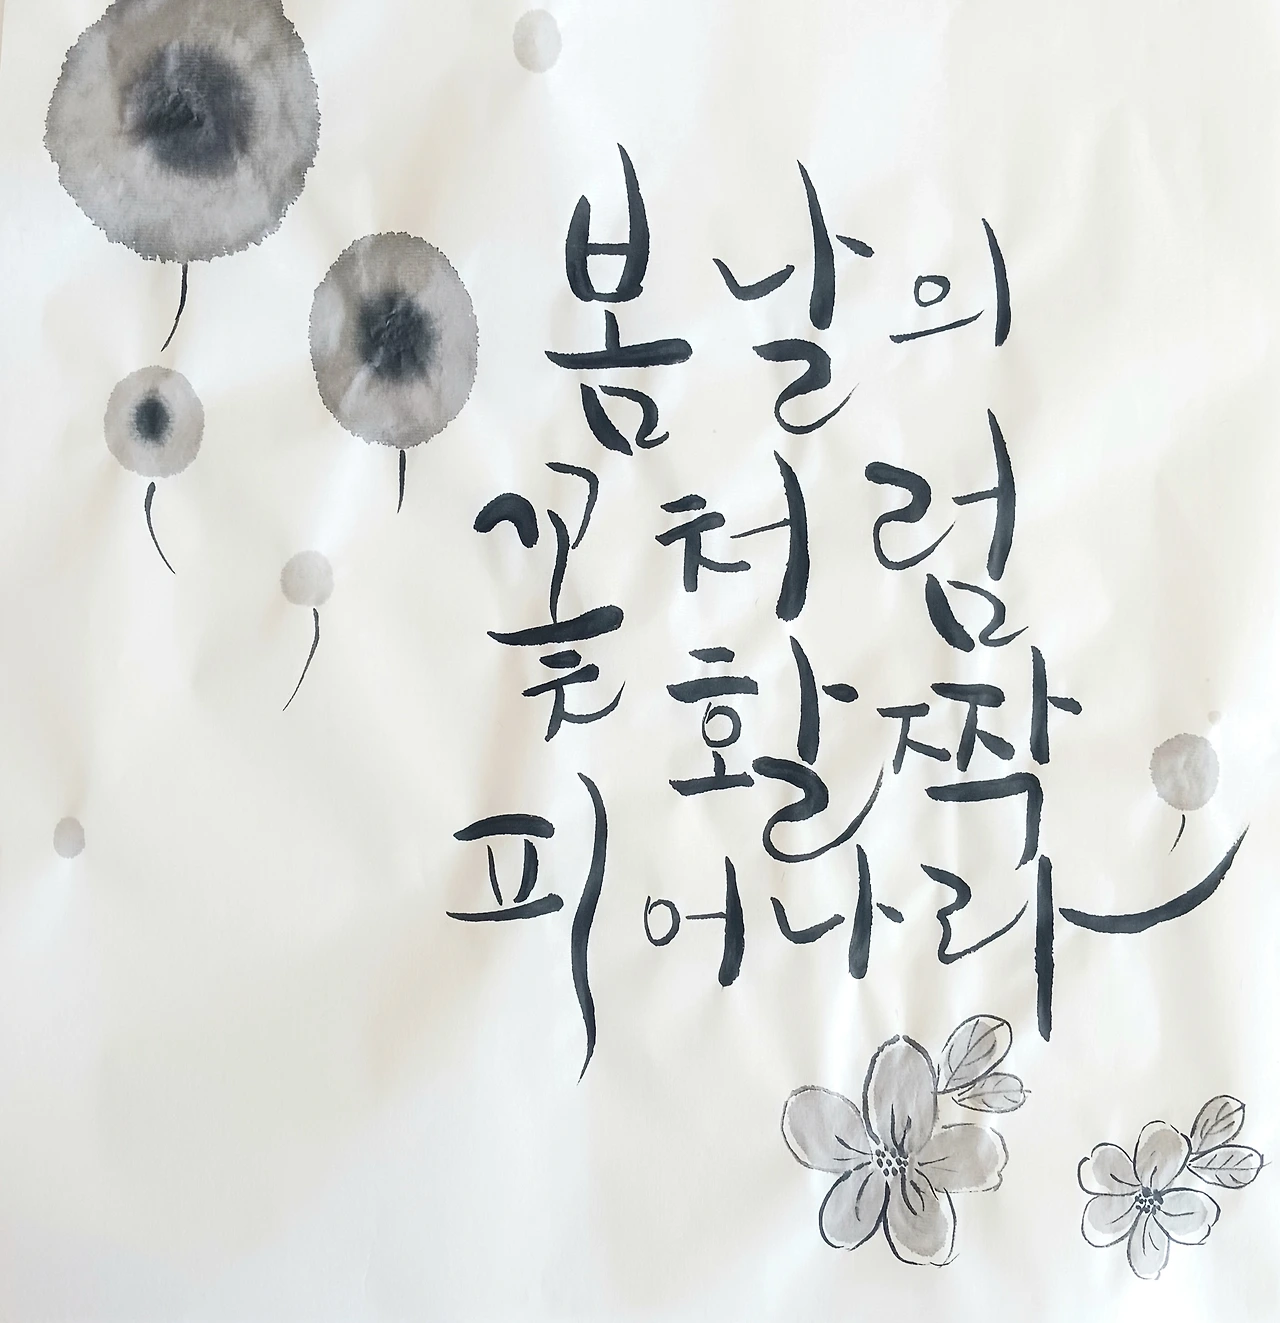 봄날의
꽃처럼
활짝
피어나라